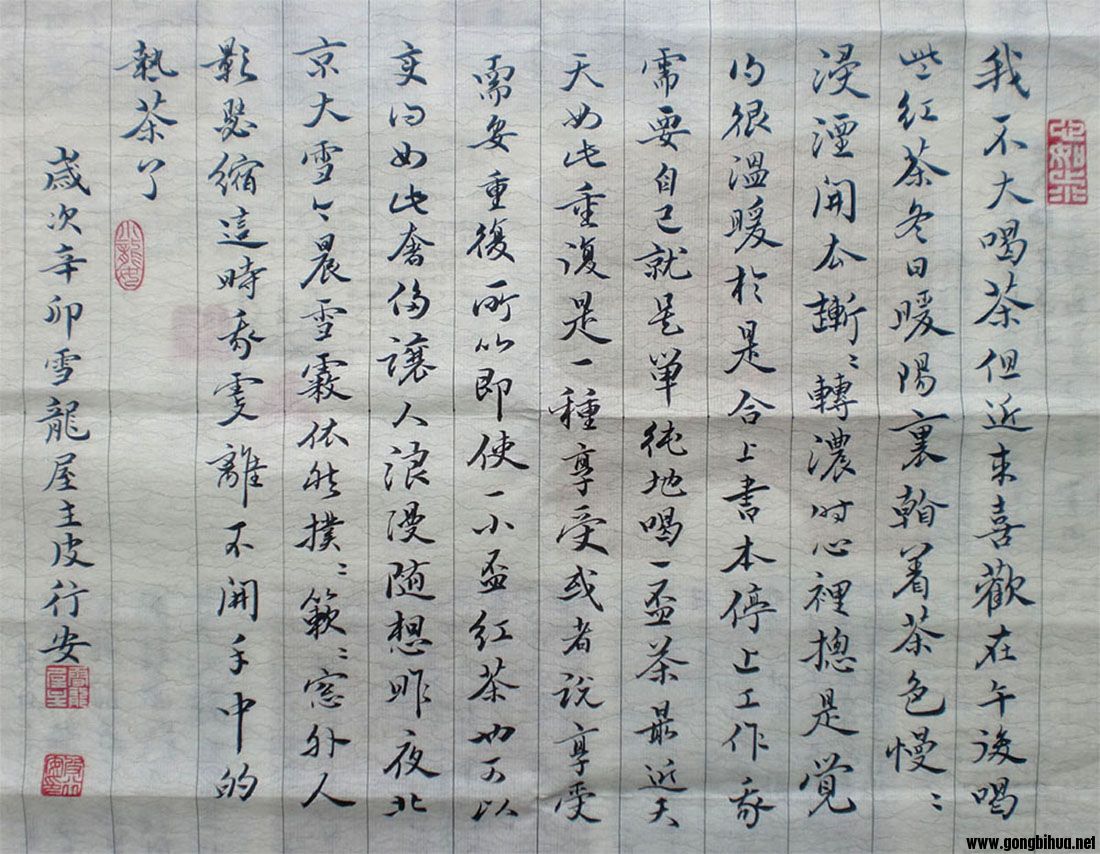 我不大喝茶但近来喜歡在午後喝
些红茶冬日暖陽裏看着茶色慢〻
浸湮開去漸〻轉濃时心裡摠是覺
得很溫暖於是合上書本停止工作我
需要自己就是單純地喝一盃茶最近天
天如此重復是一種享受或者說享受
需要重復所以即使一小盃红茶也可以
变得如此奢侈讓人浪漫随想昨夜北
京大雪今晨雪霰依然撲〻簌〻窓外人
影瑟縮這時我更離不開手中的
熱茶了
歲次辛卯雪龍屋主皮行安
www.gongbihua.net